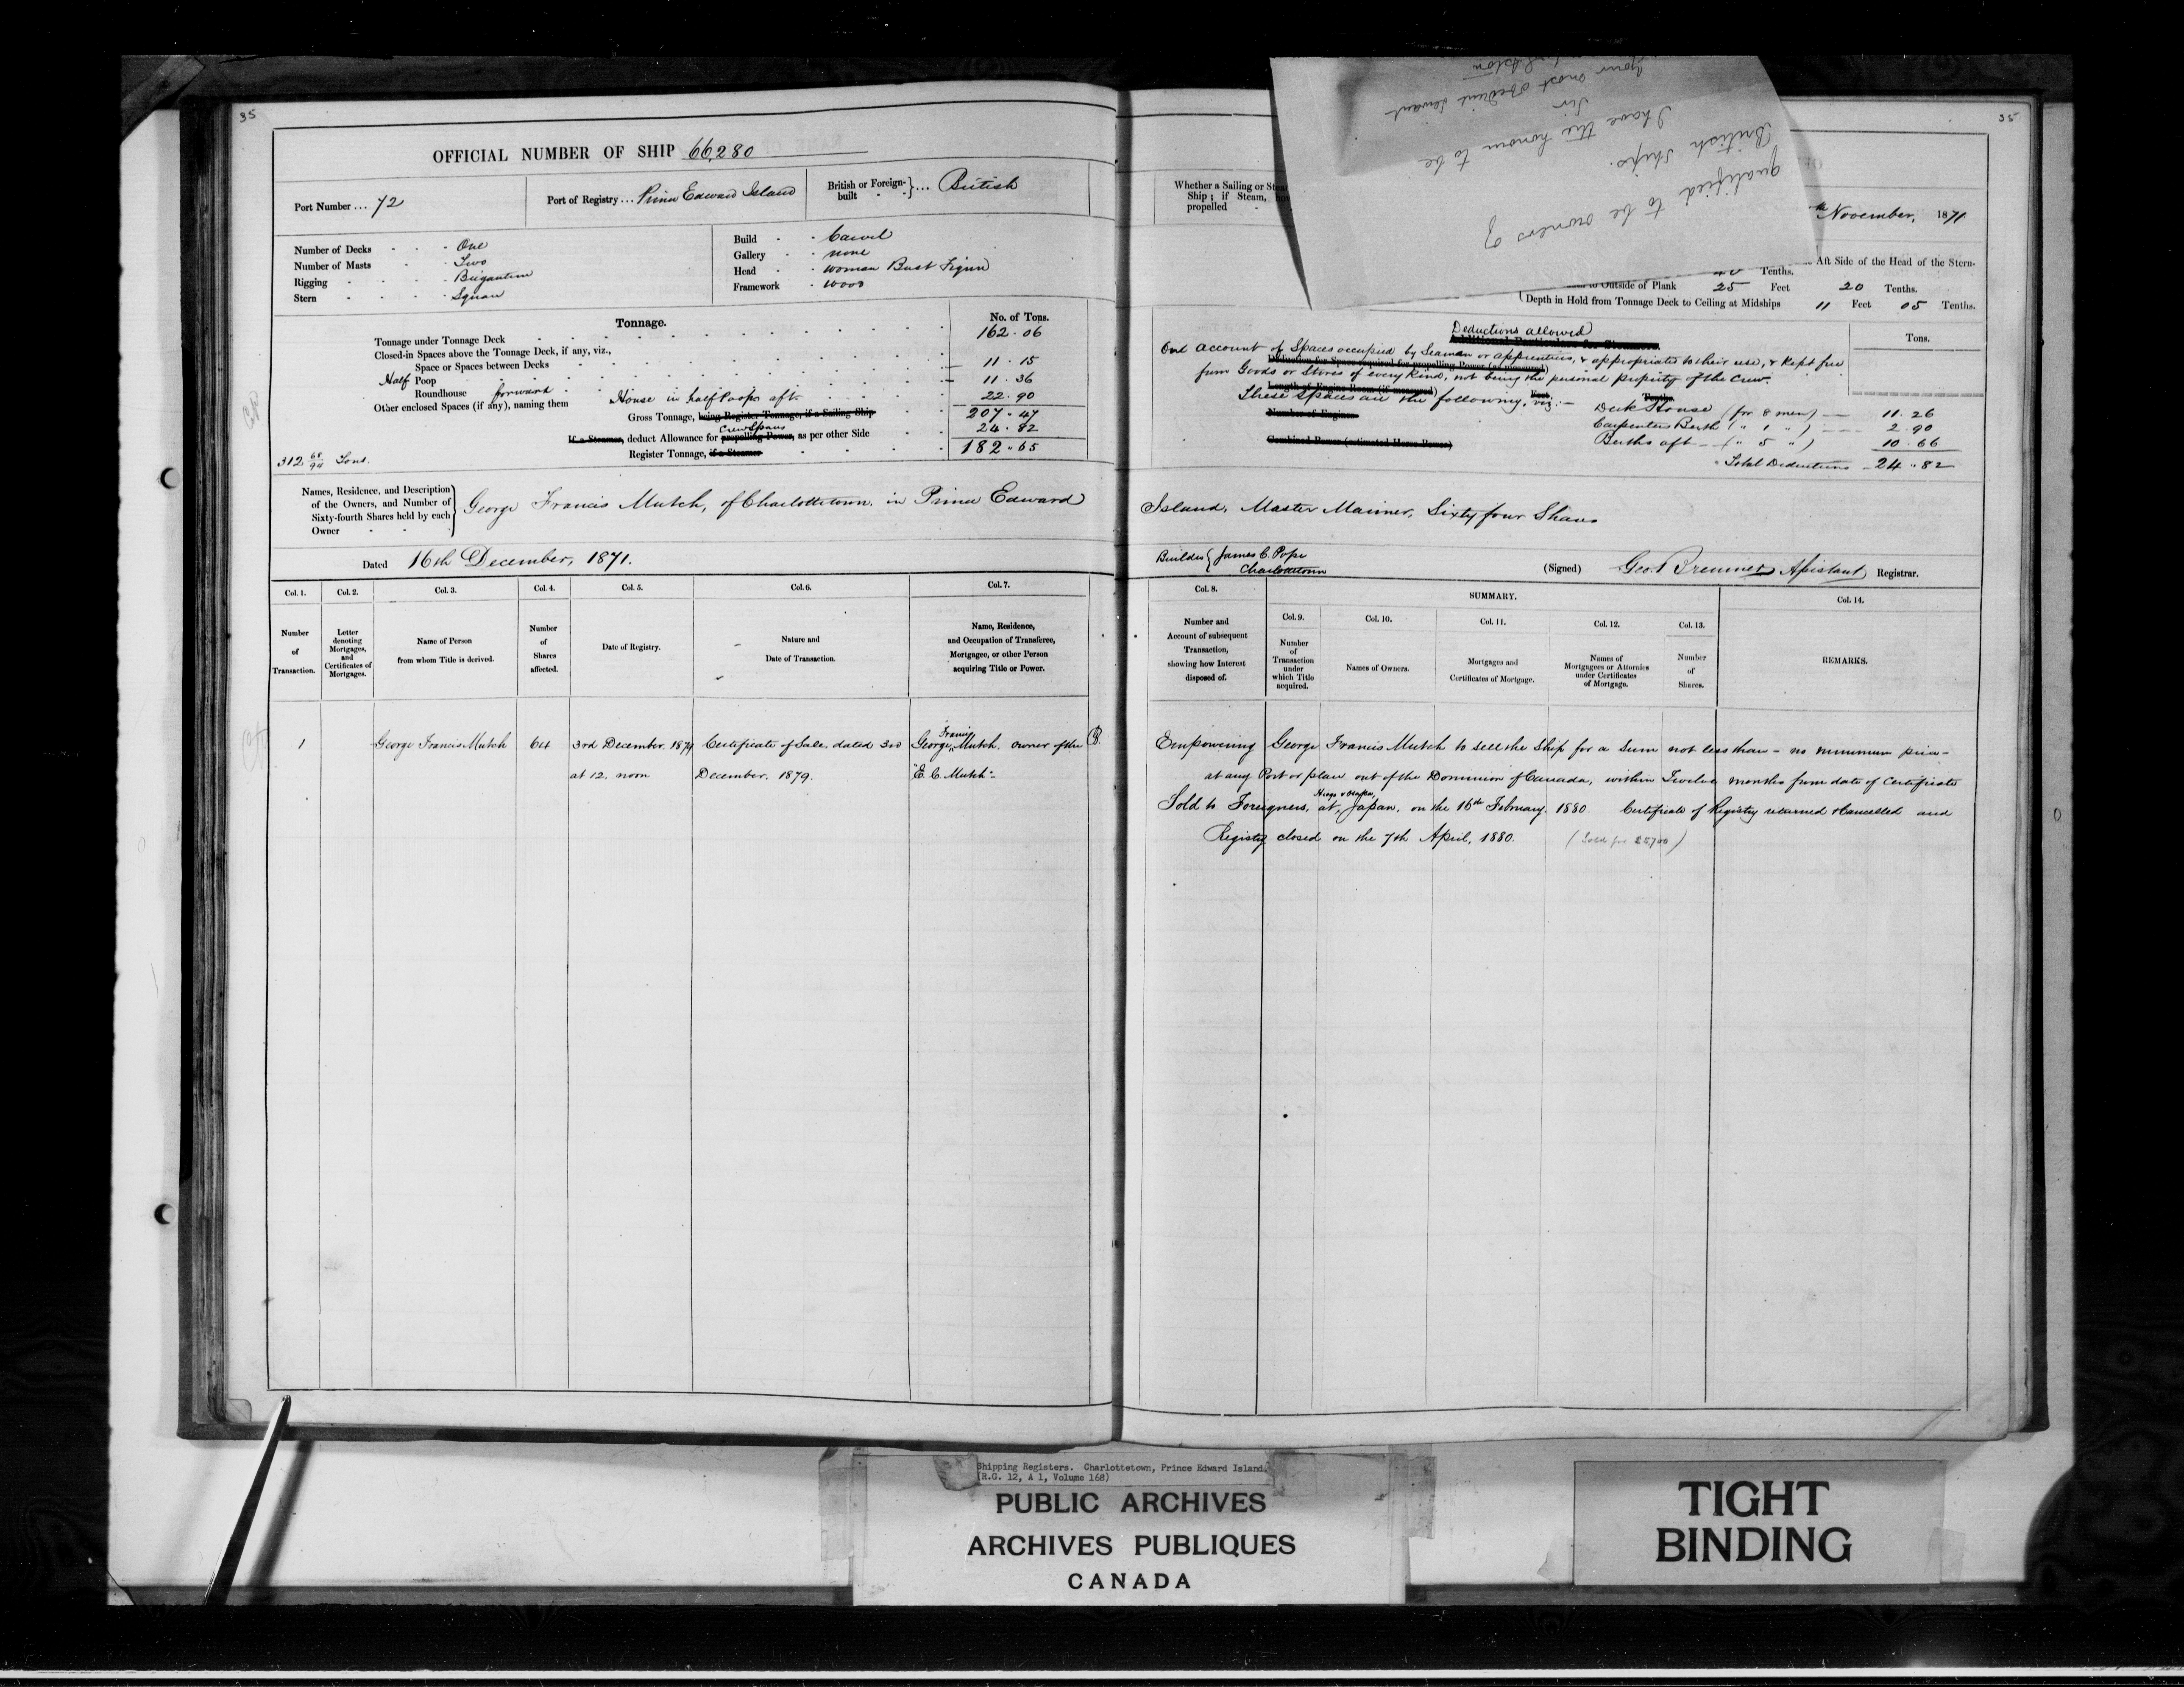 35
OFFICIAL NUMBER OF SHIP 66,280
Port Number ... 72
Port of Registry ... Prince Edward Island
British or Foreign-built } ... British
Number of Decks One
Number of Masts Two
Rigging Brigantine
Stern Square
Build Carvel
Gallery none
Head woman Bust Figure
Framework wood
Tonnage.
No. of Tons.
Tonnage under Tonnage Deck 162.06
Closed-in Spaces above the Tonnage Deck, if any, viz.,
Space or Spaces between Decks 11.15
Half Poop 11.36
Roundhouse forward
Other enclosed Spaces (if any), naming them House in half Poop aft 22.90
Gross Tonnage, being Register Tonnage, if a Sailing Ship 207.47
If a Steamer, deduct Allowance for propelling Power, Crew Space as per other Side 24.82
Register Tonnage, if a Steamer 182.65
312 68/94 Tons.
Names, Residence, and Description of the Owners, and Number of Sixty-fourth Shares held by each Owner } George Francis Mutch, of Charlottetown, in Prince Edward
Dated 16th December, 1871.
Col. 1. Number of Transaction.
Col. 2. Letter denoting Mortgages, and Certificates of Mortgages.
Col. 3. Name of Person from whom Title is derived.
Col. 4. Number of Shares affected.
Col. 5. Date of Registry.
Col. 6. Nature and Date of Transaction.
Col. 7. Name, Residence, and Occupation of Transferee, Mortgagee, or other Person acquiring Title or Power.
1 George Francis Mutch 64 3rd December, 1879 Certificate of Sale, dated 3rd George Francis Mutch. Owner of the
at 12, noon December, 1879. "E. C. Mutch"-
35
qualified to be owners of
British Ships.
I have the honour to be
Sir
Your most obedient servant
Whether a Sailing or
Ship; if Steam,
propelled
November, 1871
Aft Side of the Head of the Stern-
Tenths.
to Outside of Plank 25 Feet 20 Tenths.
Depth in Hold from Tonnage Deck to Ceiling at Midships 11 Feet 05 Tenths.
Deductions allowed
Additional Particulars for Steamers.
Tons.
On account of Spaces occupied by Seamen or apprentices, & appropriated to their use, & kept free
from Goods or Stores of every kind, not being the personal property of the Crew.
These Spaces are the following, viz:-
Deck House (for 8 men) 11.26
Number of Engines
Carpenters Berth ( " 1 " ) 2.90
Combined Power (estimated Horse Power)
Berths aft ( " 5 " ) 10.66
Total Deductions 24.82
Island, Master Mariner, Sixty four Shares
Builder { James C. Pope
Charlottetown
(Signed) Geo. Bremner Assistant Registrar.
Col. 8. Number and Account of subsequent Transaction, showing how Interest disposed of.
SUMMARY.
Col. 9. Number of Transaction under which Title acquired.
Col. 10. Names of Owners.
Col. 11. Mortgages and Certificates of Mortgage.
Col. 12. Names of Mortgagees or Attornies under Certificates of Mortgage.
Col. 13. Number of Shares.
Col. 14. REMARKS.
Empowering George Francis Mutch to sell the Ship for a sum not less than - no minimum price -
at any Port or place out of the Dominion of Canada, within Twelve months from date of Certificate
Sold to Foreigners, at Japan, on the 16th February, 1880. Certificate of Registry returned & Cancelled and
Registry closed on the 7th April, 1880. (Sold for $5700)
Shipping Registers. Charlottetown, Prince Edward Island.
(R.G. 12, A 1, Volume 168)
PUBLIC ARCHIVES
ARCHIVES PUBLIQUES
CANADA
TIGHT
BINDING